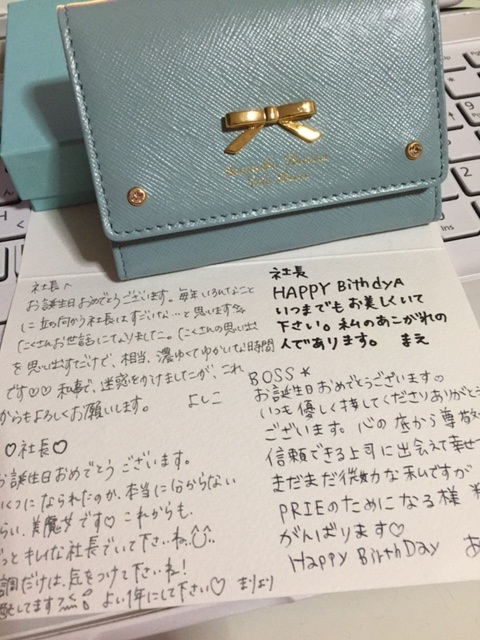 社長へ
お誕生日おめでとうございます。毎年いろんなこと
に立ち向かう社長はすごいな…と思います
たくさんお世話になりました。たくさんの思い出
を思い出すだけで、相当、濃ゆくてゆかいな時間
です♡♡ 私事で、迷惑をかけましたが、これ
からもよろしくお願いします。 よしこ
社長
HAPPY BithdyA
いつまでもお美しくいて
下さい。私のあこがれの
人であります。 まえ
♡社長♡
お誕生日おめでとうございます。
いくつになられたのか、本当に分からない
らい、美魔女です♡ これからも、
っとキレイな社長でいて下さいね
調だけは、気をつけて下さいね!
配してます よい1年にして下さい♡ まりより
BOSS*
お誕生日おめでとうございます♡
いつも優しく接してくださりありがと
ございます。心の底から尊敬
信頼できる上司に出会えて幸せ
まだまだ微力な私ですが
PRIEのためになる様
がんばります♡
Happy BirthDay あ